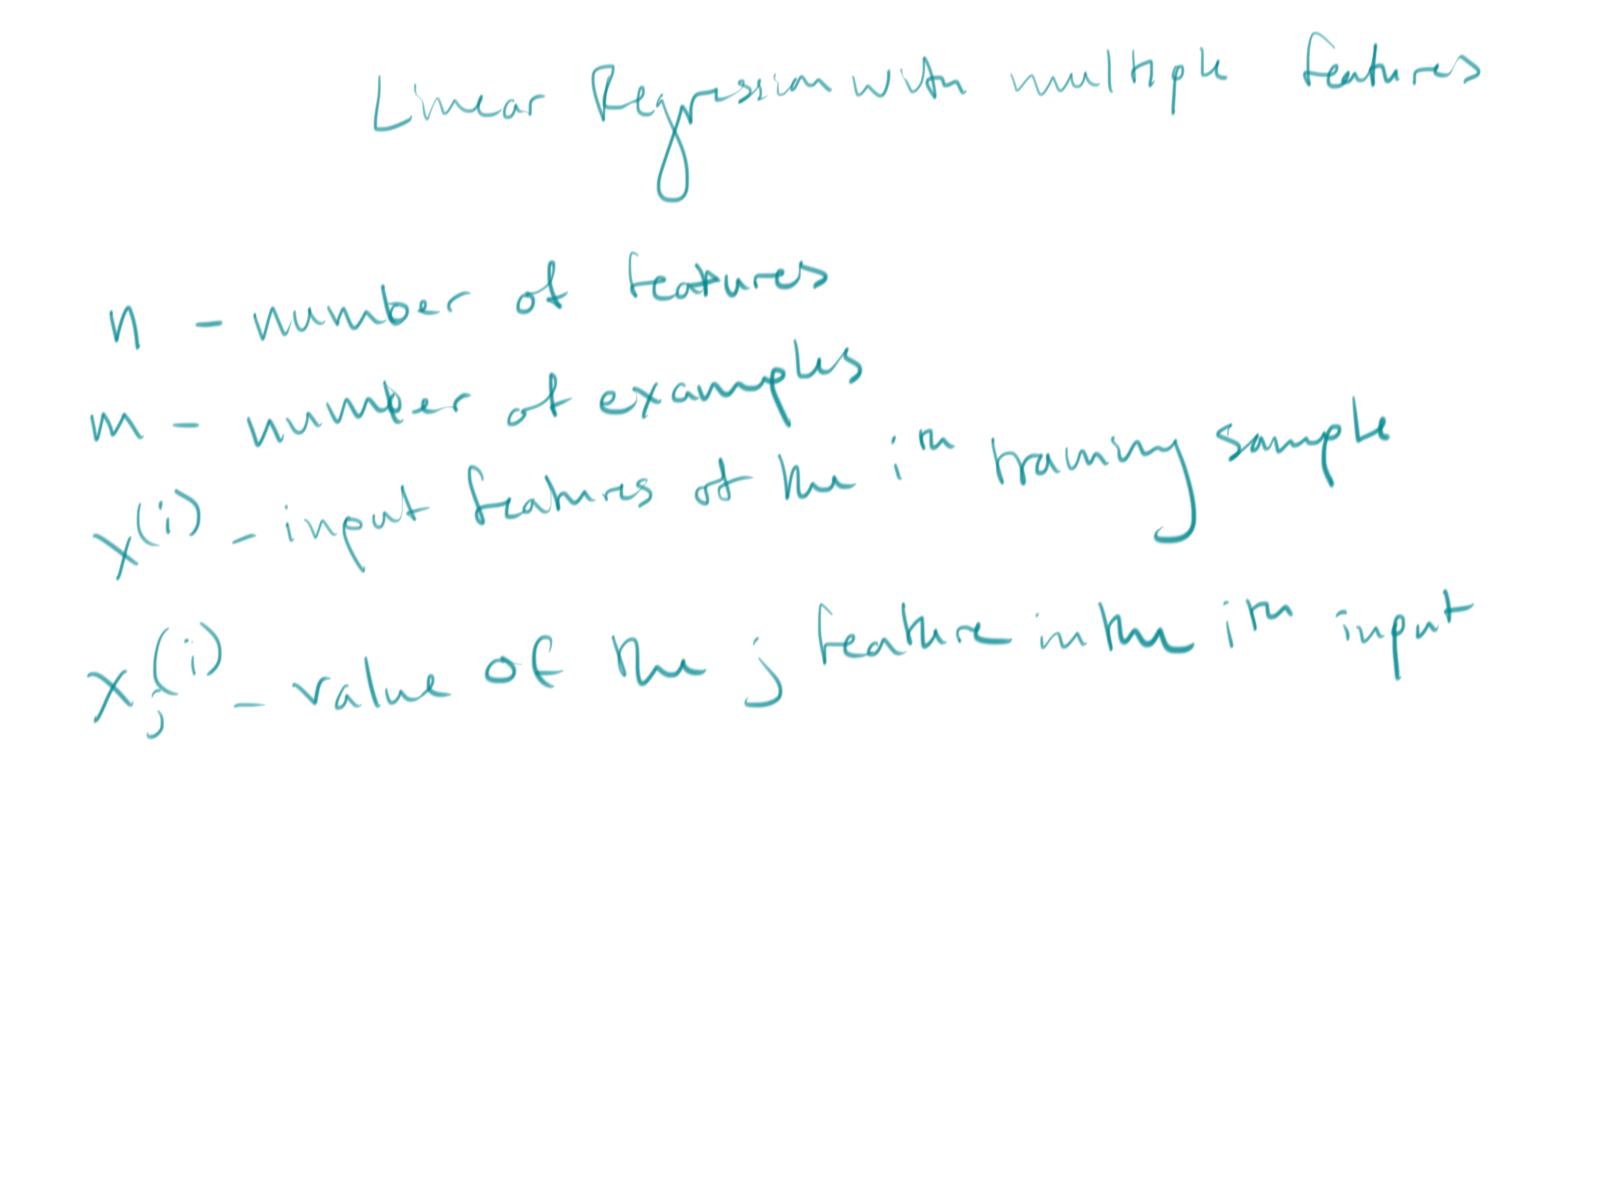 Linear Regression with multiple features
n - number of features
m - number of examples
x^(i) - input features of the i^th training sample
x_j^(i) - value of the j feature in the i^th input